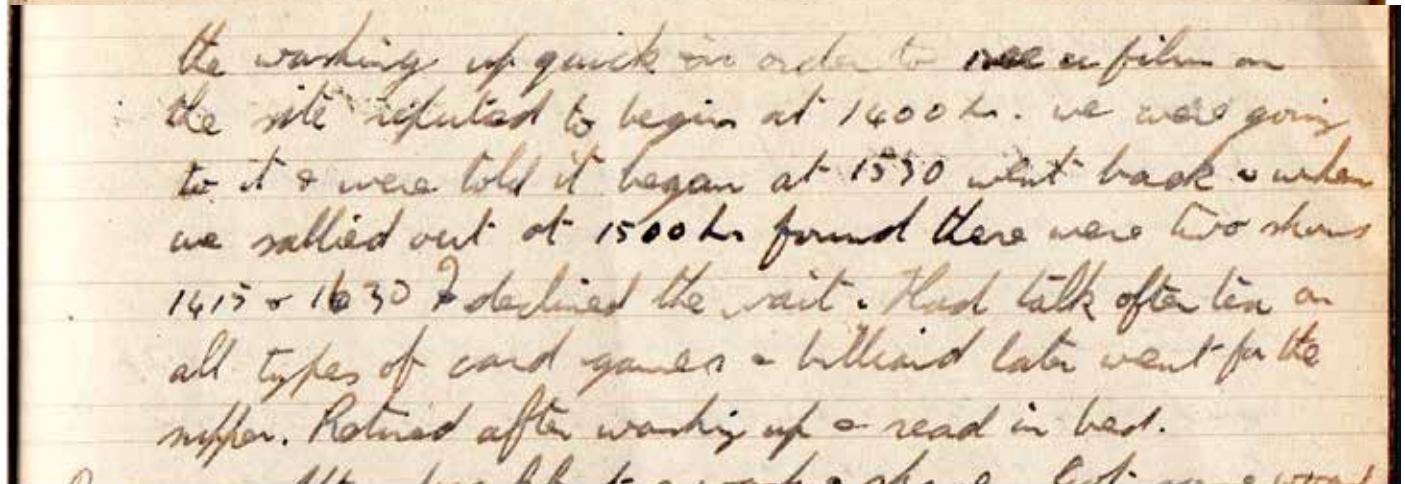 the washing up quick in order to see a film on
the site reputed to begin at 1400 hr. we were going
to it & were told it began at 1530 went back & when
we sallied out at 1500 hr found there were two shows
1415 & 1630 I declined the wait. Had talk after tea on
all types of card games & billiard later went for the
supper. Retired after washing up & read in bed.